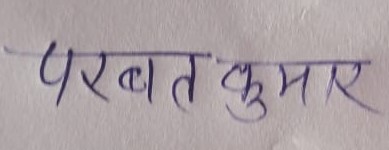 परबत कुमार